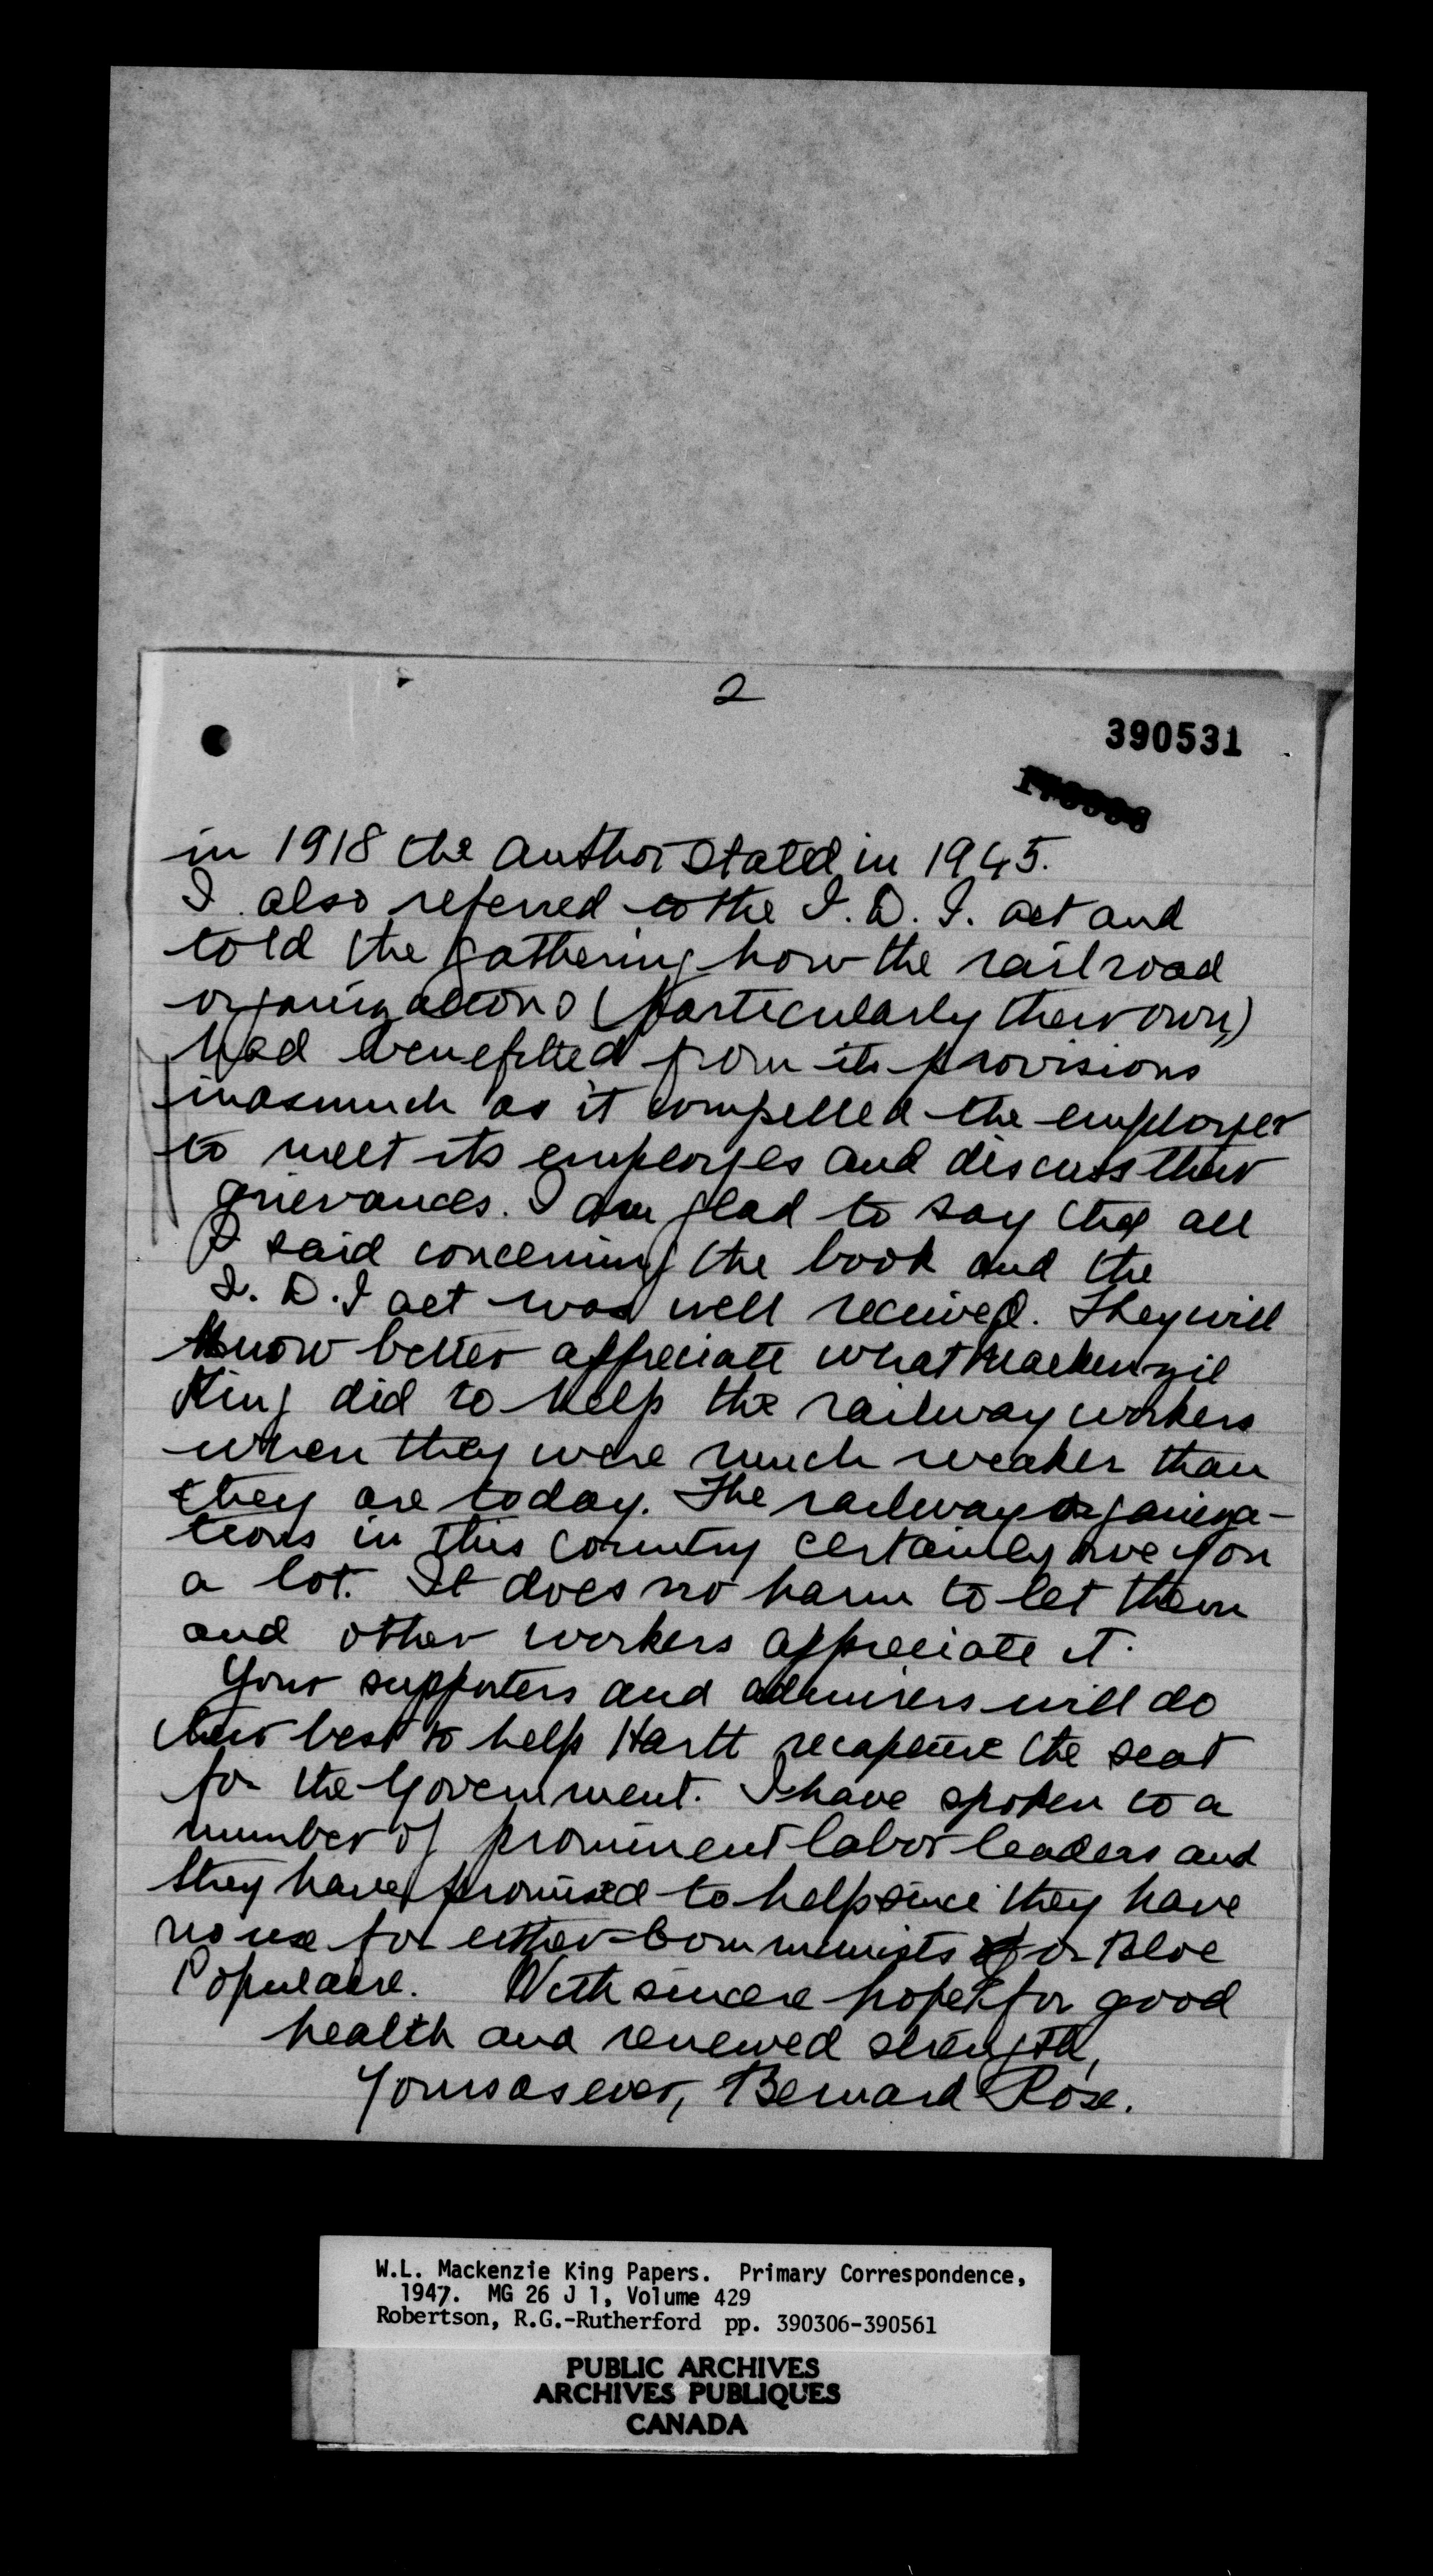 2
390531
in 1918 the author stated in 1945.
I also referred to the I. D. I. act and
told the gathering how the railroad
organizations (particularly their own)
had benefitted from its provisions
inasmuch as it compelled the employer
to meet its employes and discuss their
grievances. I am glad to say that all
I said concerning the book and the
I. D. I act was well received. They will
know better appreciate what Mackenzie
King did to help the railway workers
when they were much weaker than
they are today. The railway organiza-
tions in this country certainly owe you
a lot. It does no harm to let them
and other workers appreciate it.
Your supporters and admirers will do
their best to help Hartt recapture the seat
for the Government. I have spoken to a
number of prominent labor leaders and
they have promised to help since they have
no use for either Communists or Bloc
Populaire. With sincere hopes for good
health and renewed strength,
Yours as ever, Bernard Rose.
W.L. Mackenzie King Papers. Primary Correspondence,
1947. MG 26 J 1, Volume 429
Robertson, R.G.-Rutherford pp. 390306-390561
PUBLIC ARCHIVES
ARCHIVES PUBLIQUES
CANADA